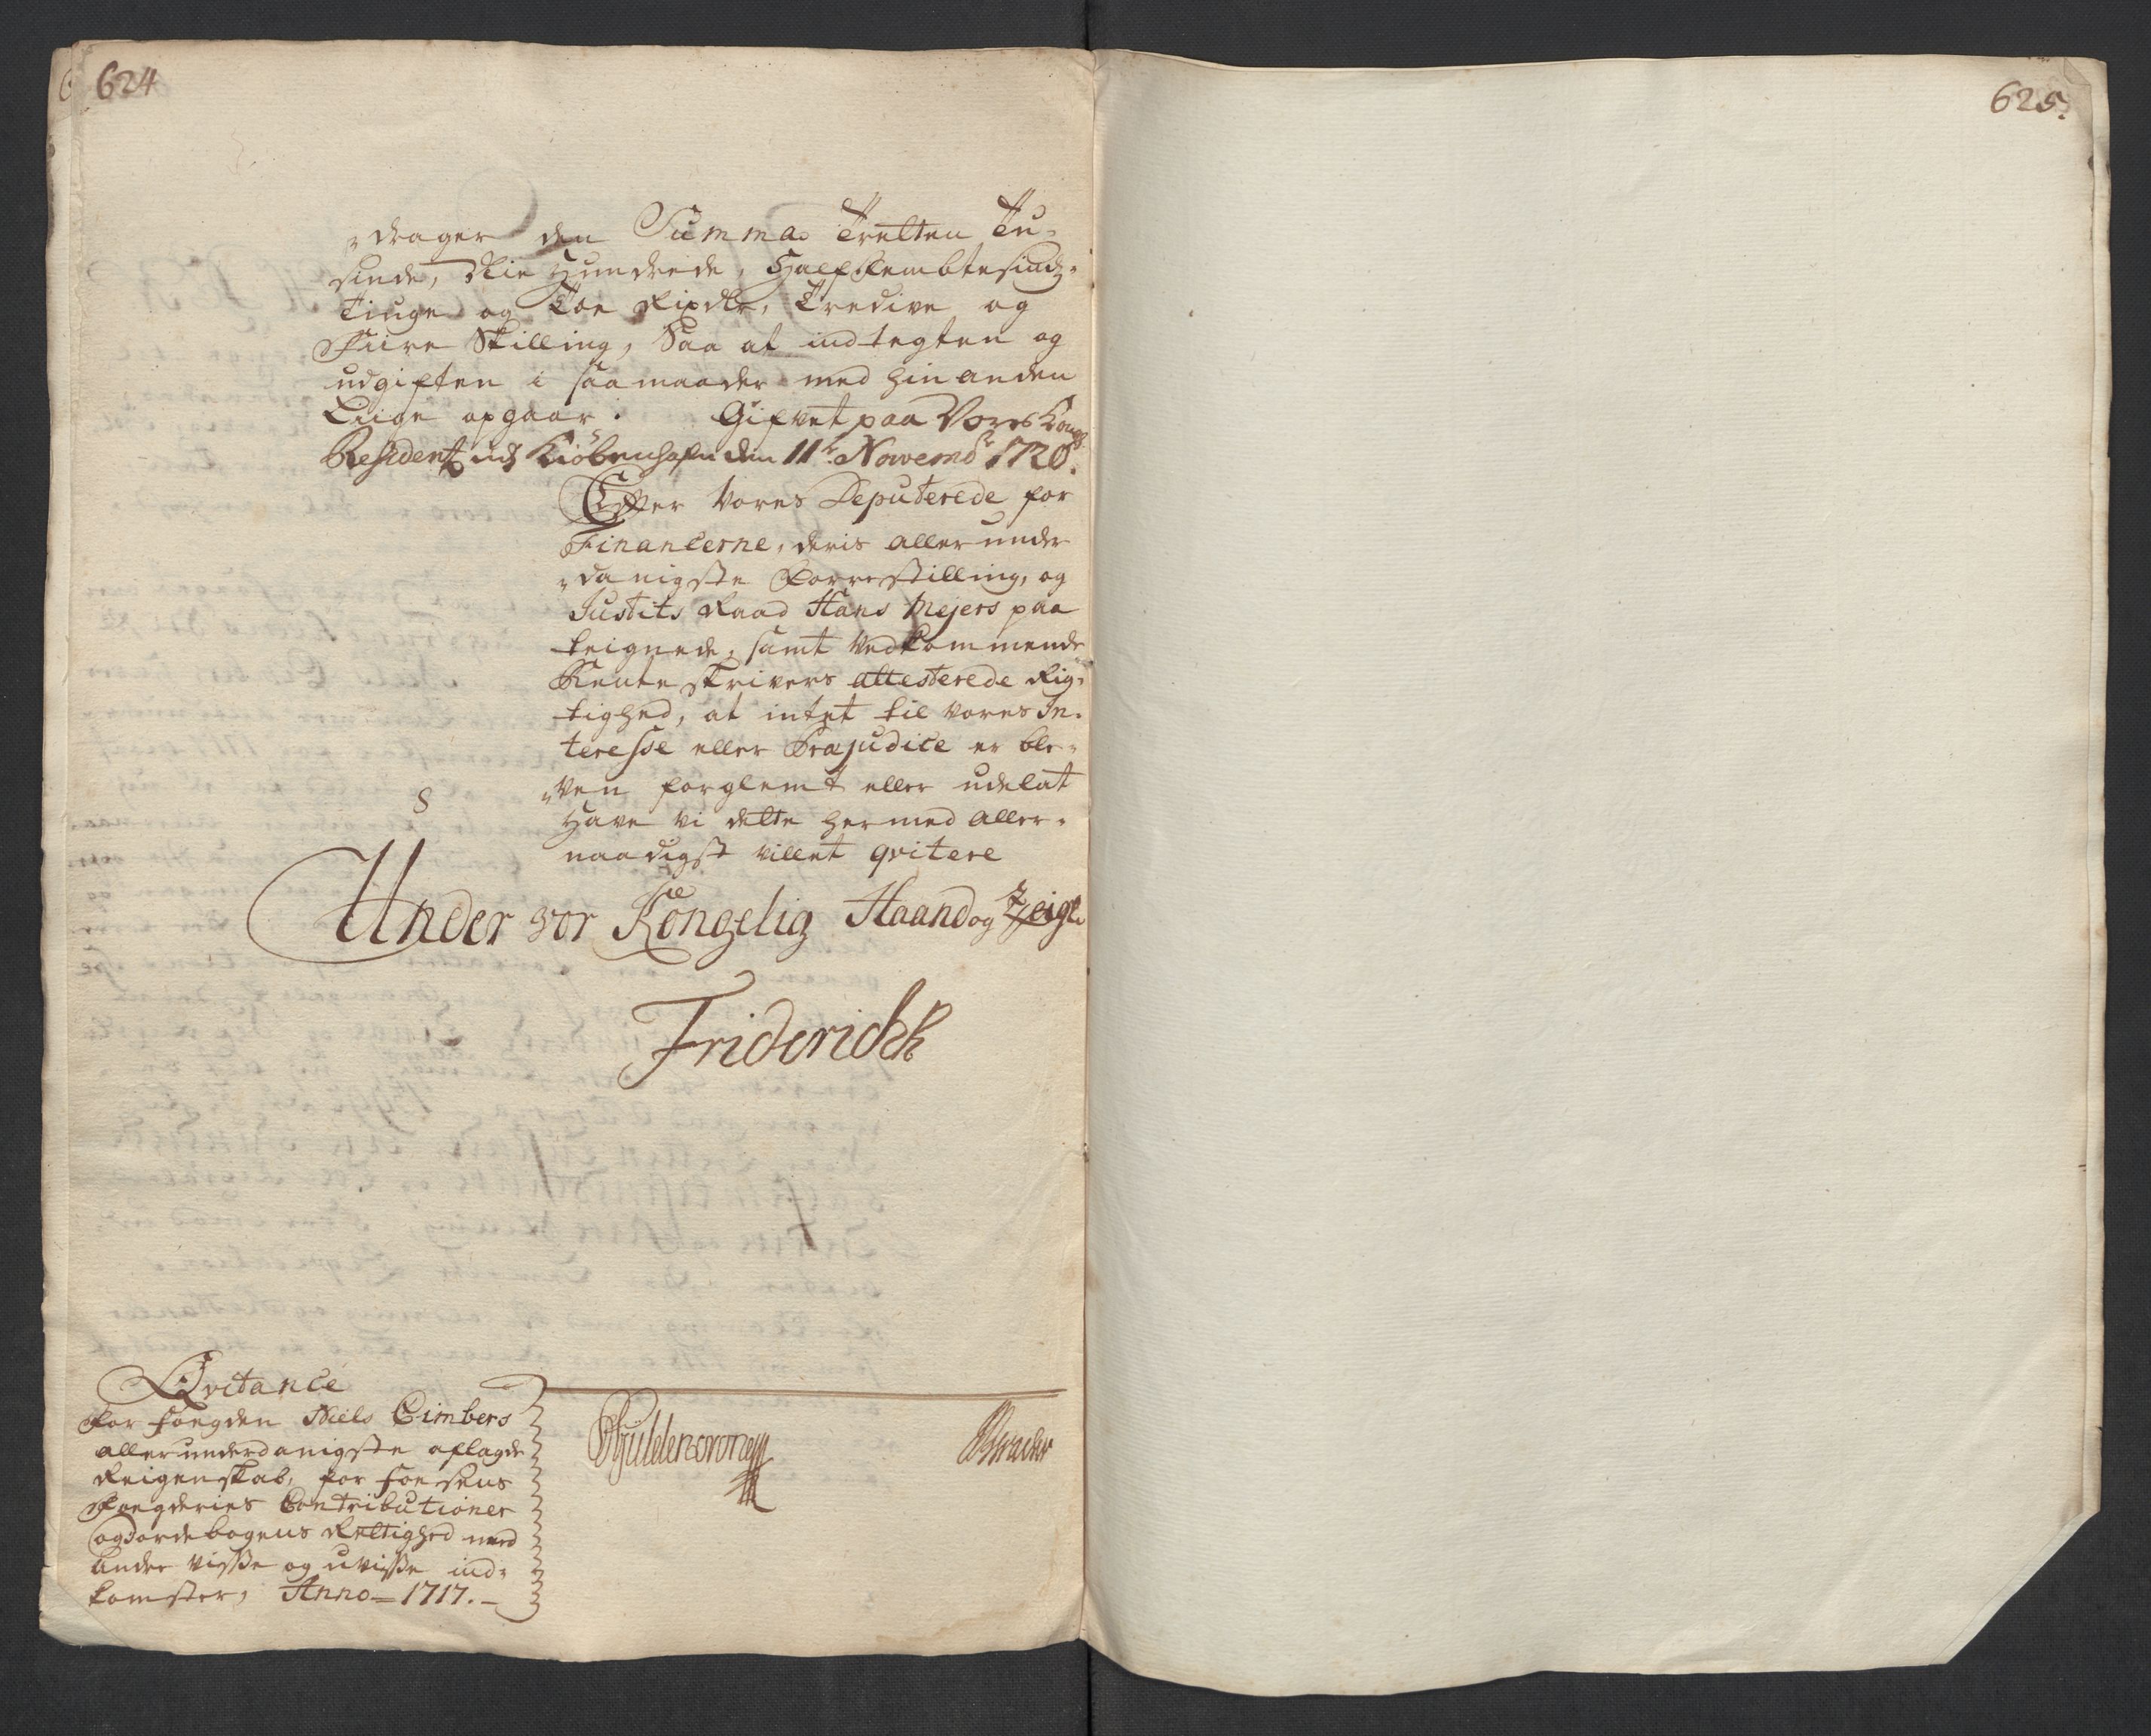 624
625.
"drager den Summa Tretten Tu-
sinde, Nie Hundrede, Half Fembtesinds-
Tiuge og Toe Rixdlr, Tredive og
Fiire Skilling, Saa at indtegten og
udgiften i saa maader med hin anden
Liige opgaar. Gifvet paa Vores Kongl.
Residentz udj Kiöbenhafn den 11te Novembr 1720.
Efter Vores Deputerede for
Financerne, deris allerunder
"danigste Forrestilling, og
Justits Raad Hans Mejers paa
teignede, samt Vedkommende
Rente skrivers attesterede Rig-
tighed, at intet til Vores In-
teresse eller Præjudice er ble-
"ven forglemt eller udelat
Have Vi dette hermed aller-
naadigst villet qvitere
Under vor Kongelig Haand og Zeigl.
Friderich R
Qvitance
for Fogden Niels Cimbers
allerunderdanigste aflagde
Reigenskab, for Foesens
Fogderies Contributioner
og Jordebogens Rettighed med
andre visse og uvisse ind-
komster, Anno 1717.
Gyldencrone